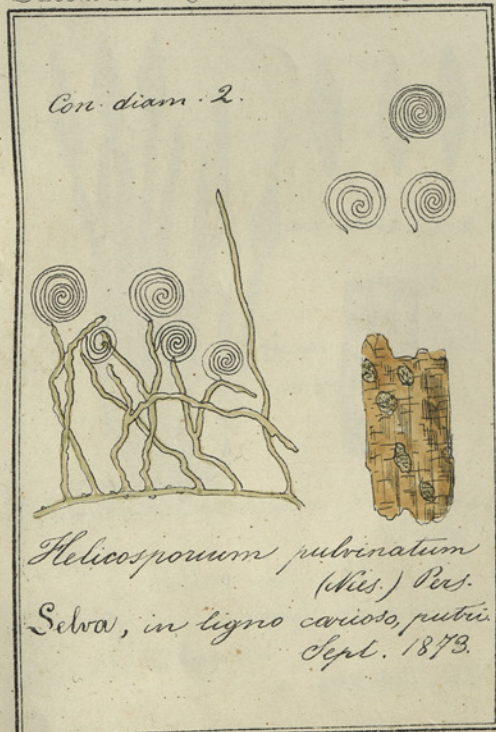 Con. diam. 2.
Helicosporium pulvinatum
(Nees.) Pers.
Selva, in ligno carioso, putri.
Sept. 1873.